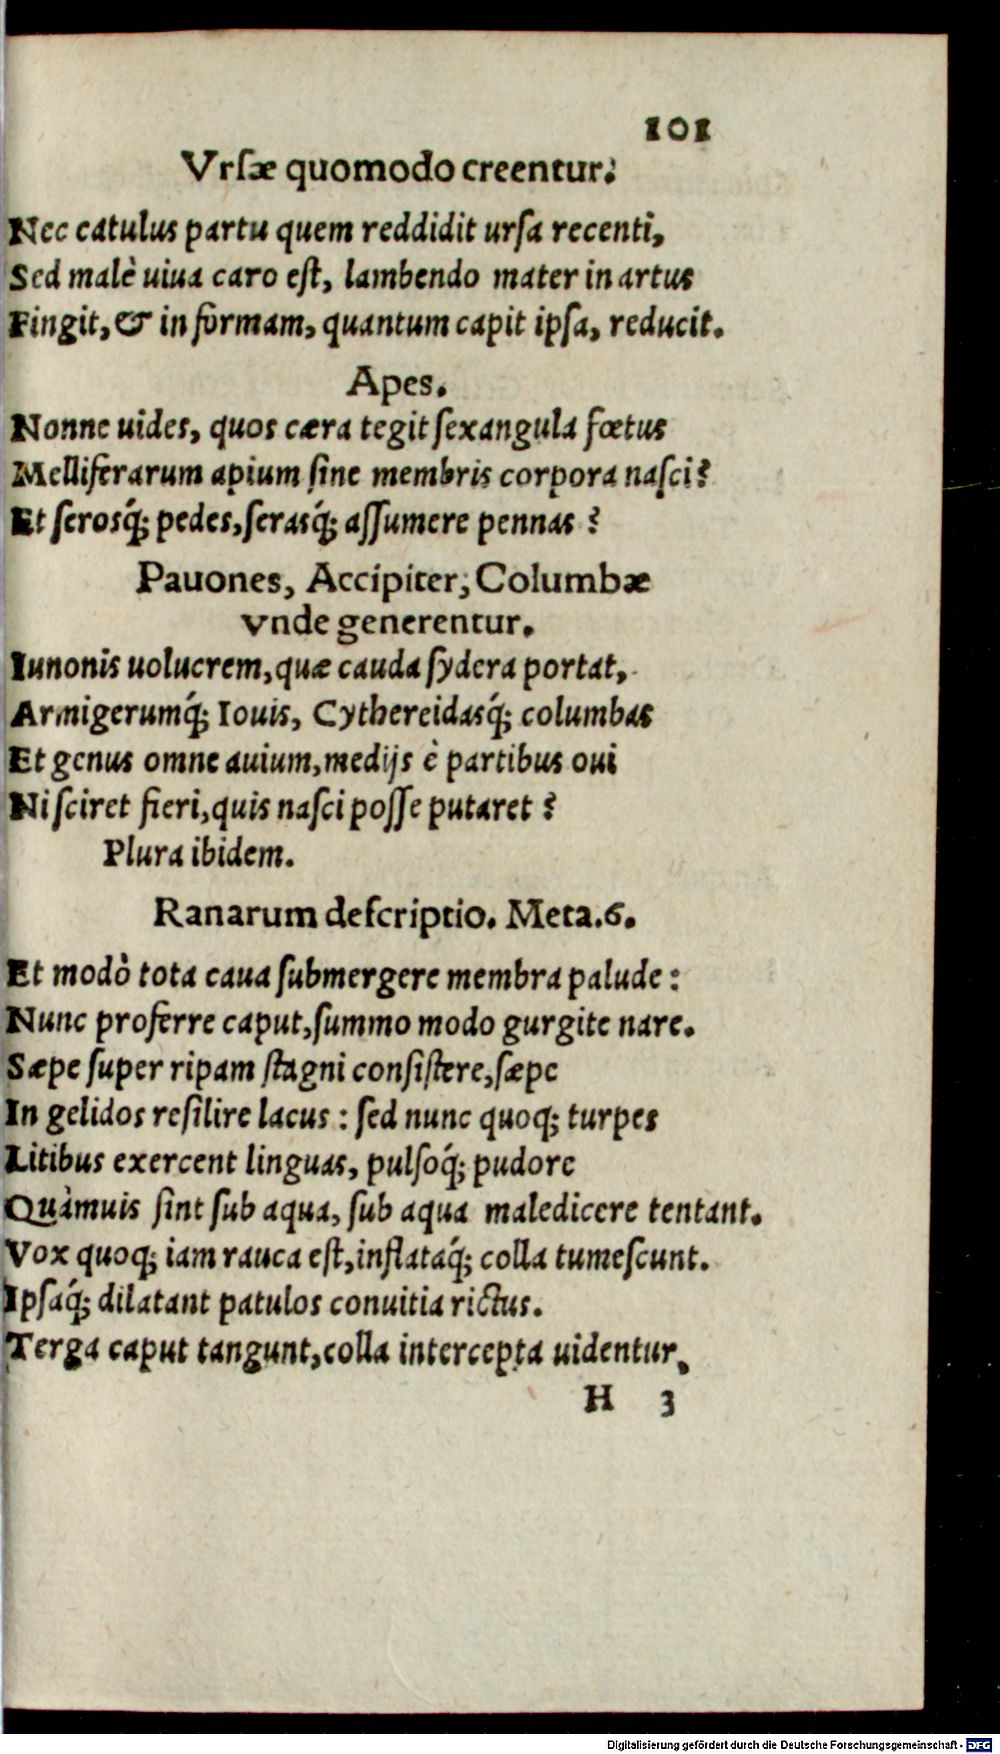 101
Vrsæ quomodo creentur.
Nec catulus partu quem reddidit ursa recenti,
Sed malè uiua caro est, lambendo mater in artus
Fingit, & in formam, quantum capit ipsa, reducit.
Apes.
Nonne uides, quos cæra tegit sexangula fœtus
Melliferarum apium sine membris corpora nasci?
Et serosq́; pedes, serasq́; assumere pennas?
Pauones, Accipiter, Columbæ
vnde generentur.
Iunonis uolucrem, quæ cauda sydera portat,
Armigerumq́; Iouis, Cythereidasq́; columbas
Et genus omne auium, medijs è partibus oui
Ni sciret fieri, quis nasci posse putaret?
Plura ibidem.
Ranarum descriptio. Meta.6.
Et modò tota caua submergere membra palude:
Nunc proferre caput, summo modo gurgite nare.
Sæpe super ripam stagni consistere, sæpe
In gelidos resilire lacus: sed nunc quoq; turpes
Litibus exercent linguas, pulsoq́; pudore
Quàmuis sint sub aqua, sub aqua maledicere tentant.
Vox quoq; iam rauca est, inflataq́; colla tumescunt.
Ipsaq́; dilatant patulos conuitia rictus.
Terga caput tangunt, colla intercepta uidentur,
H 3
Digitalisierung gefördert durch die Deutsche Forschungsgemeinschaft - DFG